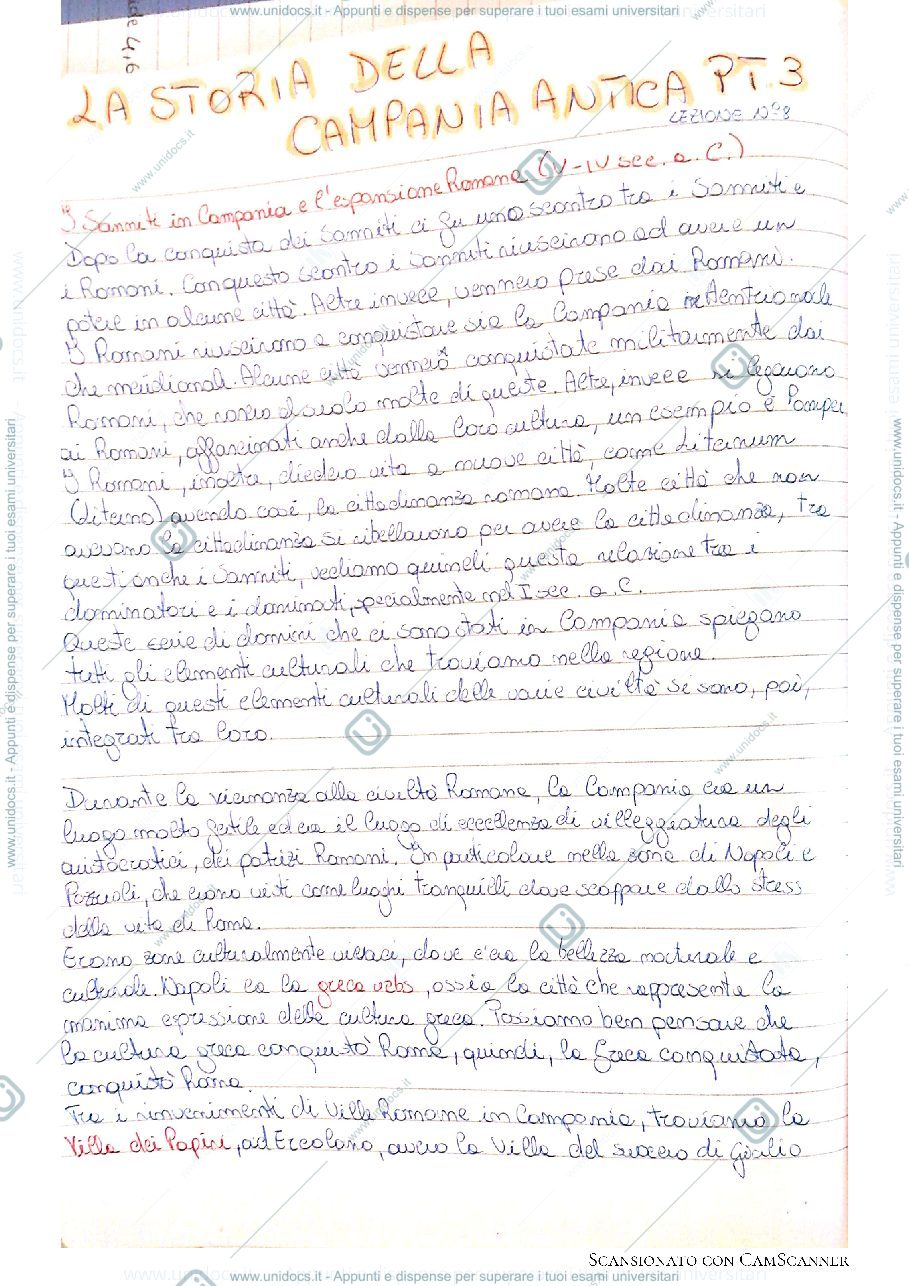 www.unidocs.it - Appunti e dispense per superare i tuoi esami universitari
LA STORIA DELLA
CAMPANIA ANTICA PT.3
LEZIONE N°8
I Sanniti in Campania e l'espansione Romana (V-IV sec. a.C.)
Dopo la conquista dei Sanniti ci fu uno scontro tra i Sanniti e
i Romani. Con questo scontro i Sanniti riuscirono ad avere un
potere in alcune città. Altre invece, vennero prese dai Romani.
I Romani riuscirono a conquistare sia la Campania settentrionale
che meridional. Alcune città vennero conquistate militarmente dai
Romani, che molte di queste. Altre, invece si legarono
ai Romani, affascinati anche dalla loro cultura, un esempio è Pompei
I Romani, inoltre, diedero vita a nuove città, come Liternum
(Literno) avendo così, la cittadinanza romana. Molte città che non
avevano la cittadinanza si ribellarono per avere la cittadinanza, tra
questi anche i Sanniti, vediamo quindi questa relazione tra i
dominatori e i dominati, specialmente nel I sec. a.C.
Queste serie di domini che ci sono stati in Campania spiegano
tutti gli elementi culturali che troviamo nella regione.
Molti di questi elementi culturali delle varie civiltà si sono, poi,
integrati tra loro.
Durante la vicinanza alla civiltà Romana, la Campania era un
luogo molto fertile ed era il luogo di eccellenza di villeggiatura degli
aristocratici, dei patrizi Romani. In particolare nella zona di Napoli e
Pozzuoli, che erano visti come luoghi tranquilli dove scappare dallo stress
della vita di Roma.
Erano zone culturalmente vivaci, dove c'era la bellezza naturale e
culturale. Napoli era la greca urbs, ossia la città che rappresenta la
massima espressione della cultura greca. Possiamo ben pensare che
la cultura greca conquistò Roma, quindi, la Grecia conquistata,
conquistò Roma.
Tra i rinvenimenti di Ville Romane in Campania, troviamo la
Villa dei Papiri, ad Ercolano, ovvero la Villa del suocero di Giulio
SCANSIONATO CON CAMSCANNER
www.unidocs.it - Appunti e dispense per superare i tuoi esami universitari